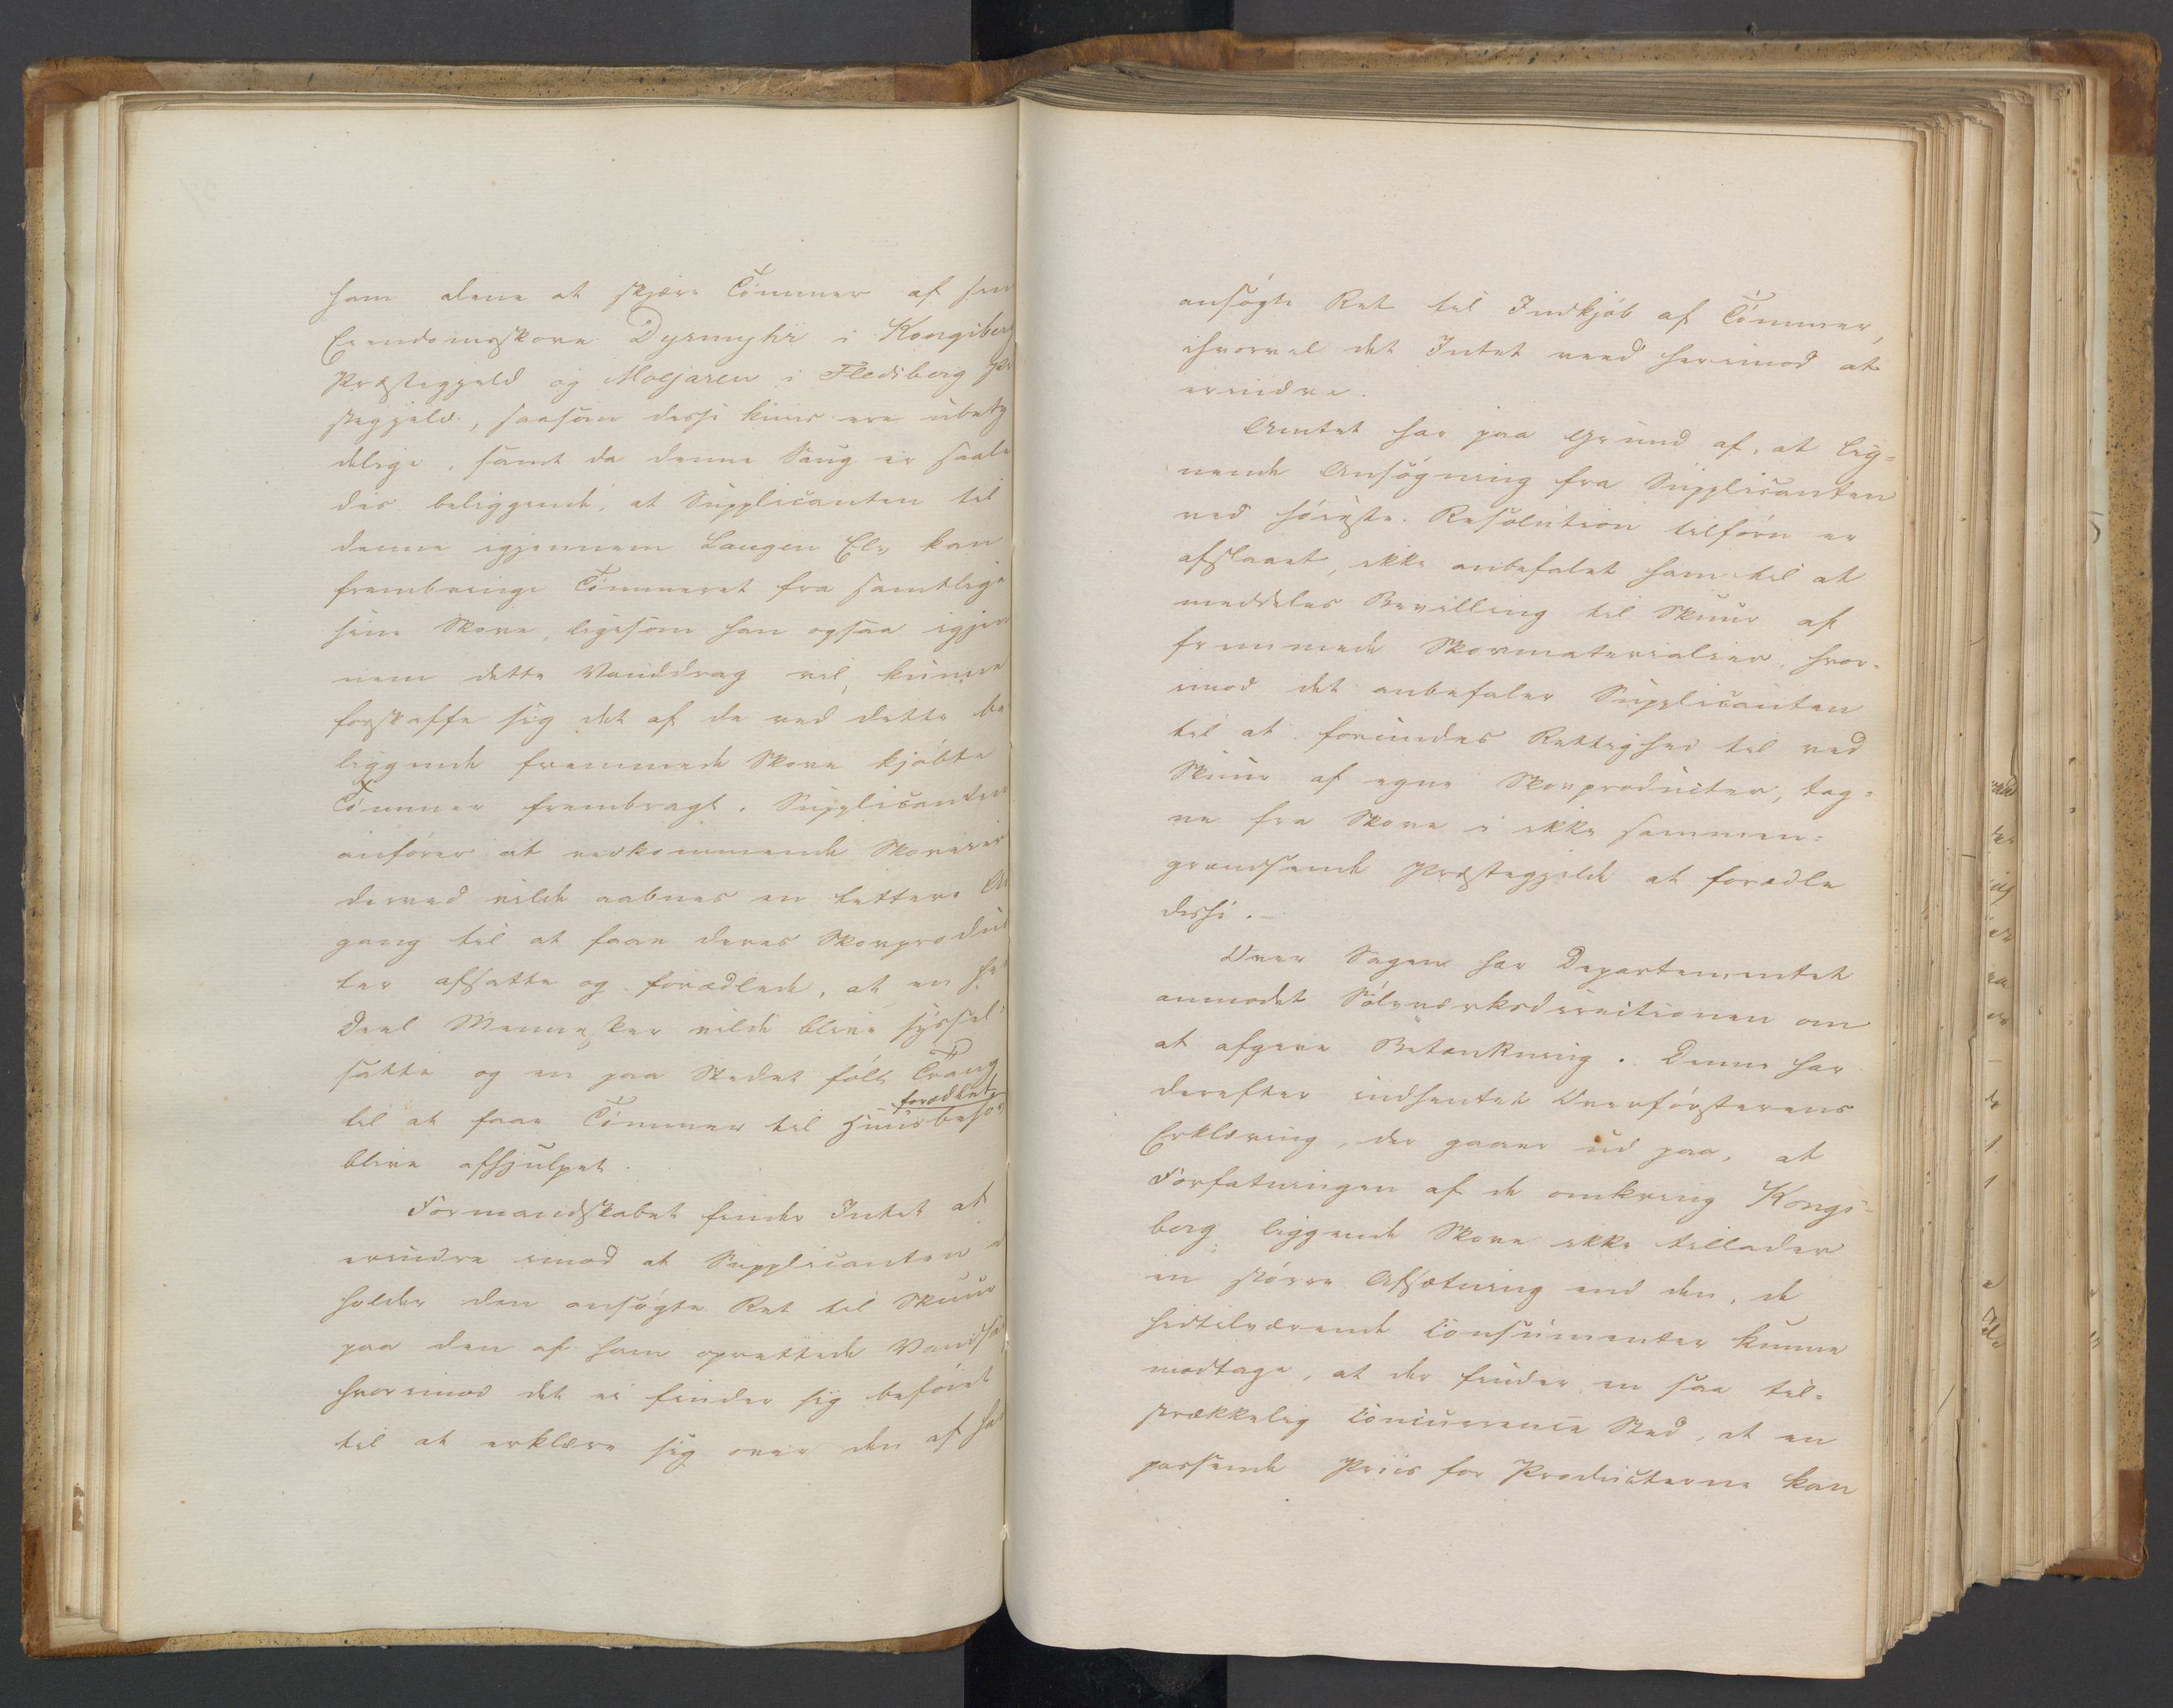 ham alene at skjære Tömmer af sin
Eiendomsskove Dyrmyhr i Kongsberg
Præstegjeld og Moejaren i Flesberg Præ
stegjeld, saasom disse kuns ere ubety
delige, samt da denne Saug er saale
des beliggende, at Supplicanten til
denne igjennem Laugen Elv kan
frembringe Tömmeret fra samtlige
sine Skove, ligesom han ogsaa igjen
nem dette Vanddrag vil kunne
forskaffe sig det af de ved dette be
liggende fremmede Skove kjöbte
Tömmer frembragt. Supplicanten
anförer at vedkommende Skoveier
derved vilde aabnes en lettere Ad
gang til at faae deres Skovproduc
ter afsatte og forædlede, at en
Deel Mennesker vilde blive syssel-
satte og en paa Stedet fölt Trang
til at faae Tömmer til Huusbehov forædlet
blive afhjulpet.
Formandskabet finder Intet at
erindre imod at Supplicanten
holder den ansögte Ret til Skuur
paa den af ham oprettede Vandsa
hvorimod det ei finder sig beföiet
til at erklære sig over den af
ansögte Ret til Indkjöb af Tömmer,
ihvorvel det Intet veed herimod at
erindre.
Amtet har paa Grund af, at lig-
nende Ansögning fra Supplicanten
ved höieste Resolution tilforn er
afslaaet, ikke anbefalet ham til at
meddeles Bevilling til Skuur af
fremmede Skovmaterialier, hvor-
imod det anbefaler Supplicanten
til at forundes Rettighed til ved
Skuur af egne Skovproducter, tag-
ne fra Skove i ikke sammen-
grændsende Præstegjelde at forædle
disse.-
Over Sagen har Departementet
anmodet Sölvværksdirectionen om
at afgive Betænkning. Denne har
derefter indhentet Overförsterens
Erklæring, der gaaer ud paa, at
Forfatningen af de omkring Kongs-
berg liggende Skove ikke tillader
en större Afsætning end den, de
hidtilværende Consumenter kunne
modtage, at der finder en saa til-
strækkelig Concurrence Sted, at en
passende Priis for Producterne kan